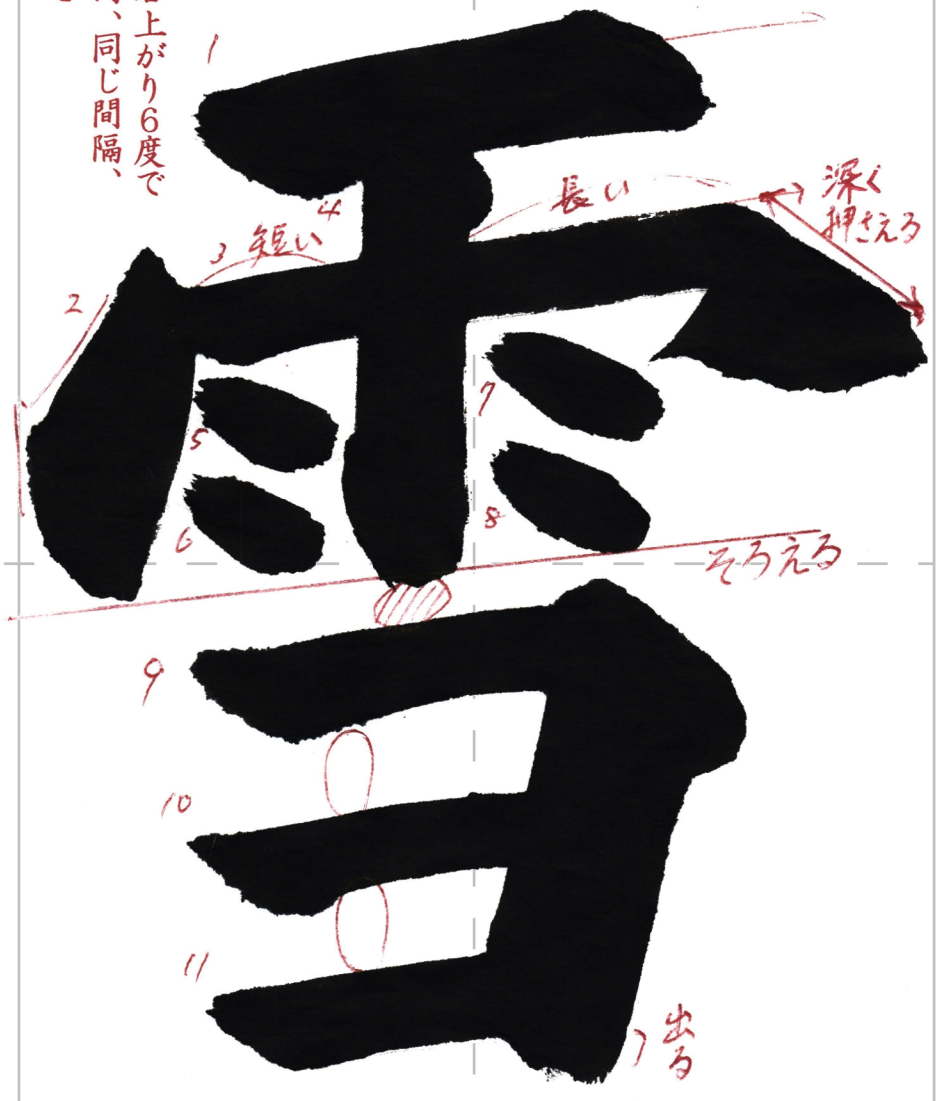 上がり6度で
、同じ間隔、
雪
1
2
3
短い
4
長い
深く
押さえる
5
6
7
8
そろえる
9
10
11
出る